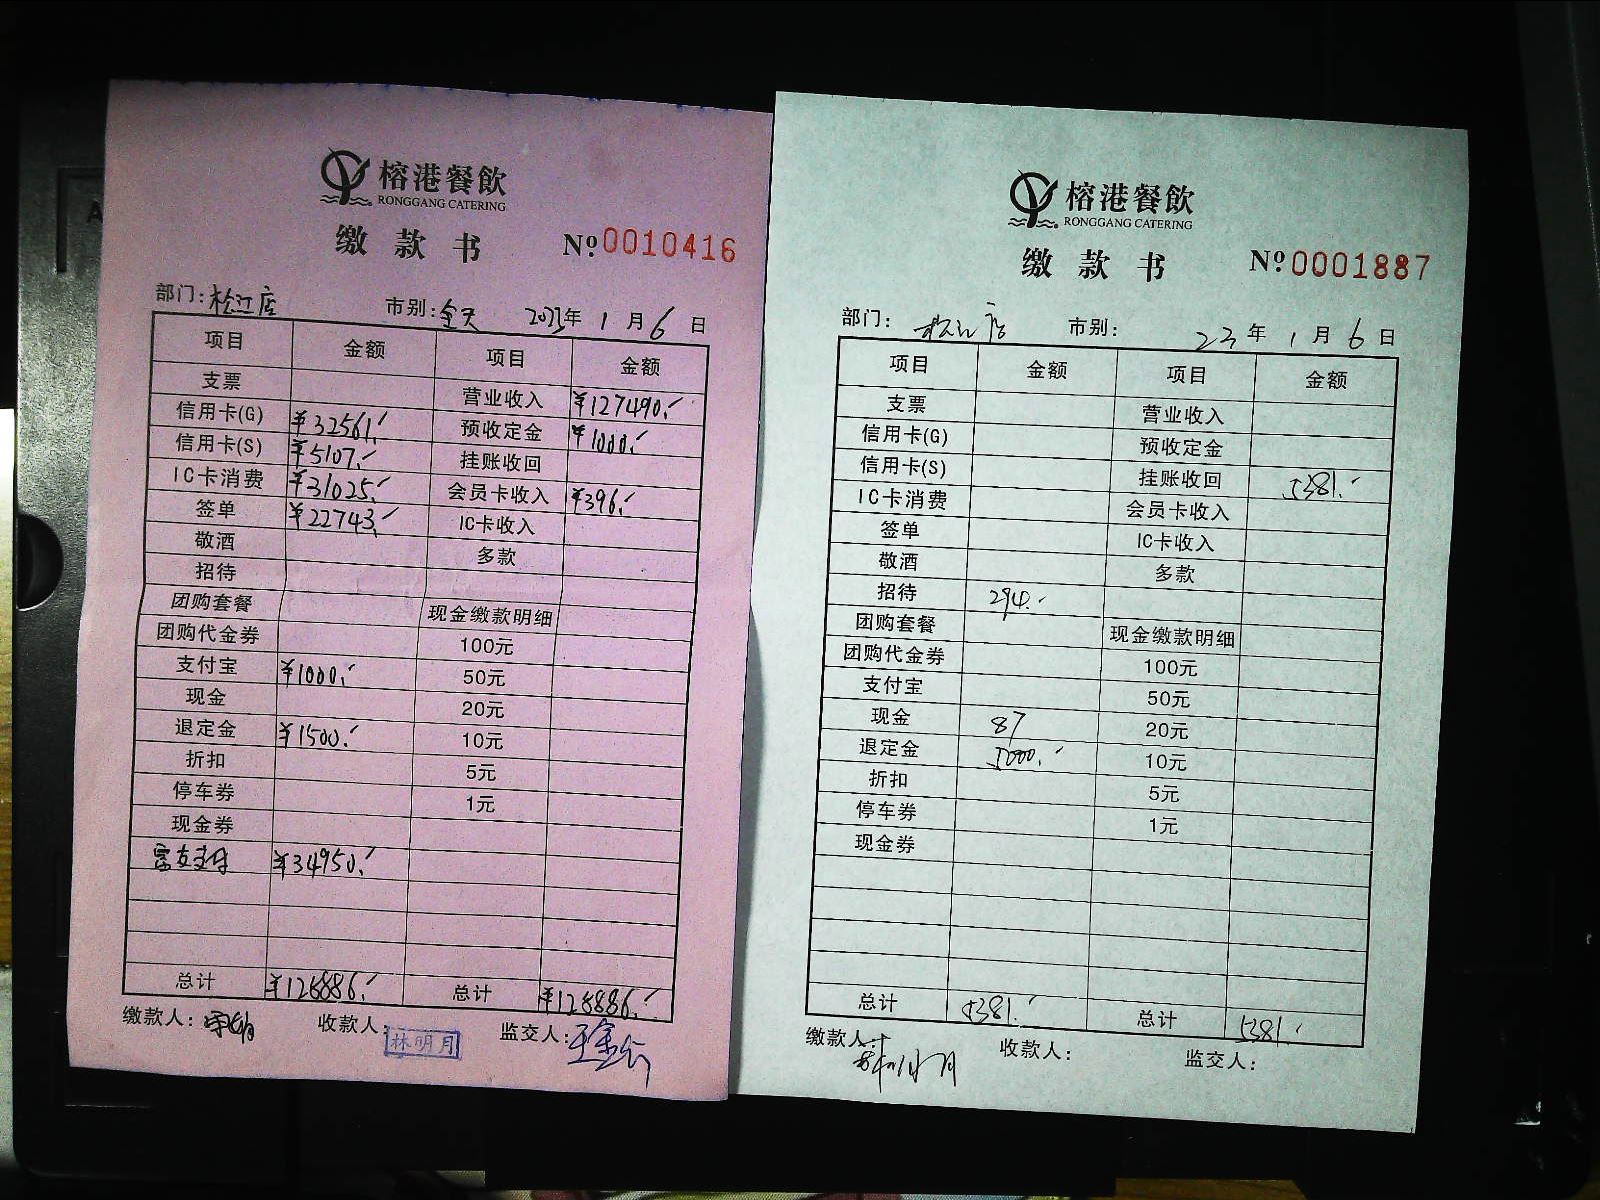 榕港餐飲
RONGGANG CATERING
缴款书 №0010416
部门:松江店 市别:全天 2023年1月6日
项目 金额 项目 金额
支票 营业收入 ¥127490.-
信用卡(G) ¥32561.- 预收定金 ¥1000.-
信用卡(S) ¥5107.- 挂账收回
IC卡消费 ¥31025.- 会员卡收入 ¥396.-
签单 ¥22743.- IC卡收入
敬酒 多款
招待
团购套餐 现金缴款明细
团购代金券 100元
支付宝 ¥1000.- 50元
现金 20元
退定金 ¥1500.- 10元
折扣 5元
停车券 1元
现金券
支付 ¥34950.-
总计 ¥128886.- 总计 ¥128886.-
缴款人: 收款人: 林明月 监交人:
榕港餐飲
RONGGANG CATERING
缴款书 №0001887
部门:松江店 市别: 23年1月6日
项目 金额 项目 金额
支票 营业收入
信用卡(G) 预收定金
信用卡(S) 挂账收回 5381.-
IC卡消费 会员卡收入
签单 IC卡收入
敬酒 多款
招待 294.-
团购套餐 现金缴款明细
团购代金券 100元
支付宝 50元
现金 87 20元
退定金 5000.- 10元
折扣 5元
停车券 1元
现金券
总计 5381.- 总计 5381.-
缴款人: 收款人: 监交人: